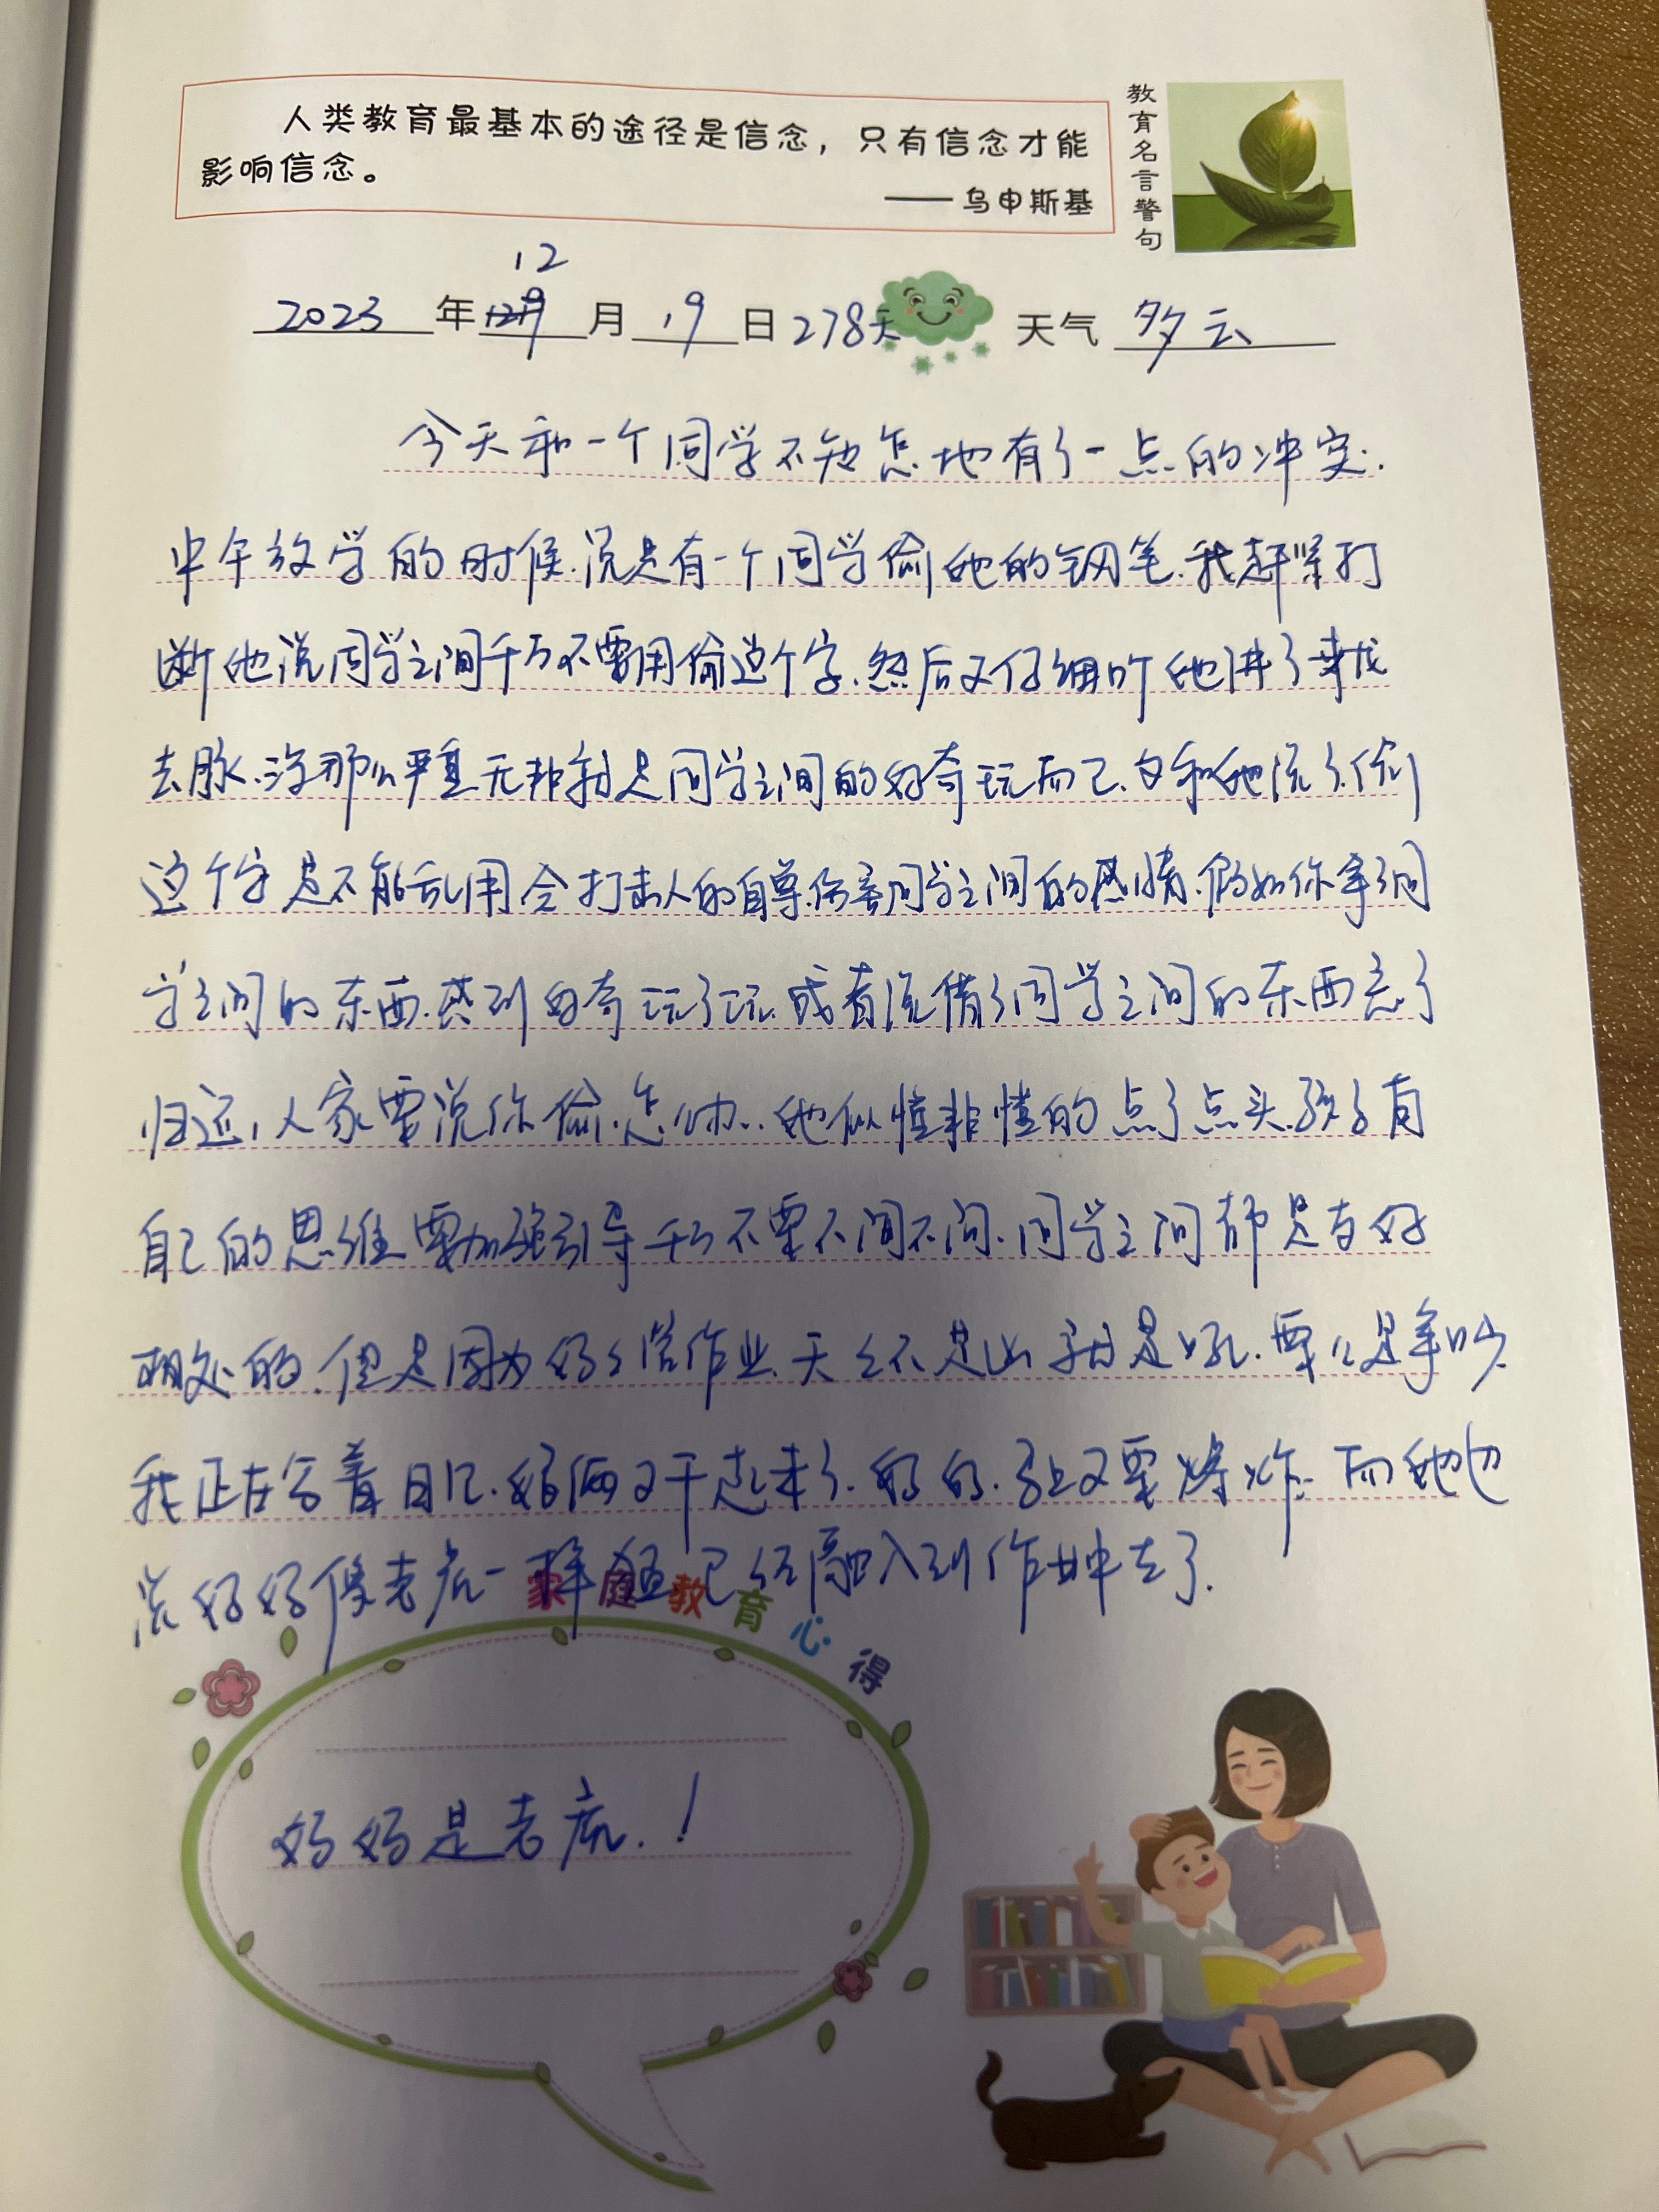 人类教育最基本的途径是信念，只有信念才能
影响信念。
——乌申斯基
教育名言警句
12
2023年 月19日278天 天气 多云
今天和一个同学不知怎地有了一点的冲突.
中午放学的时候.说是有一个同学偷他的钢笔.我赶紧打
断他说同学之间千万不要用偷这个字.然后又仔细听他讲了来龙
去脉.没那么严重无非就是同学之间的好奇玩而已.又和他说了.偷
这个字是不能乱用会打击人的自尊.伤害同学之间的感情.假如你拿了同
学之间的东西.感到好奇玩了玩.或者说借了同学之间的东西忘了
归还,人家要说你偷.怎么办..他似懂非懂的点了点头.孩子有
自己的思维要加强引导千万不要不闻不问.同学之间都是友好
相处的.但是因为妈妈管作业.天天不是 就是吼.要么是争吵.
我正在写着日记.娘俩又干起来了.妈的. 又要爆炸.而他也
说妈妈像老虎一样 已经融入到作业中去了.
家庭教育心得
妈妈是老虎.!